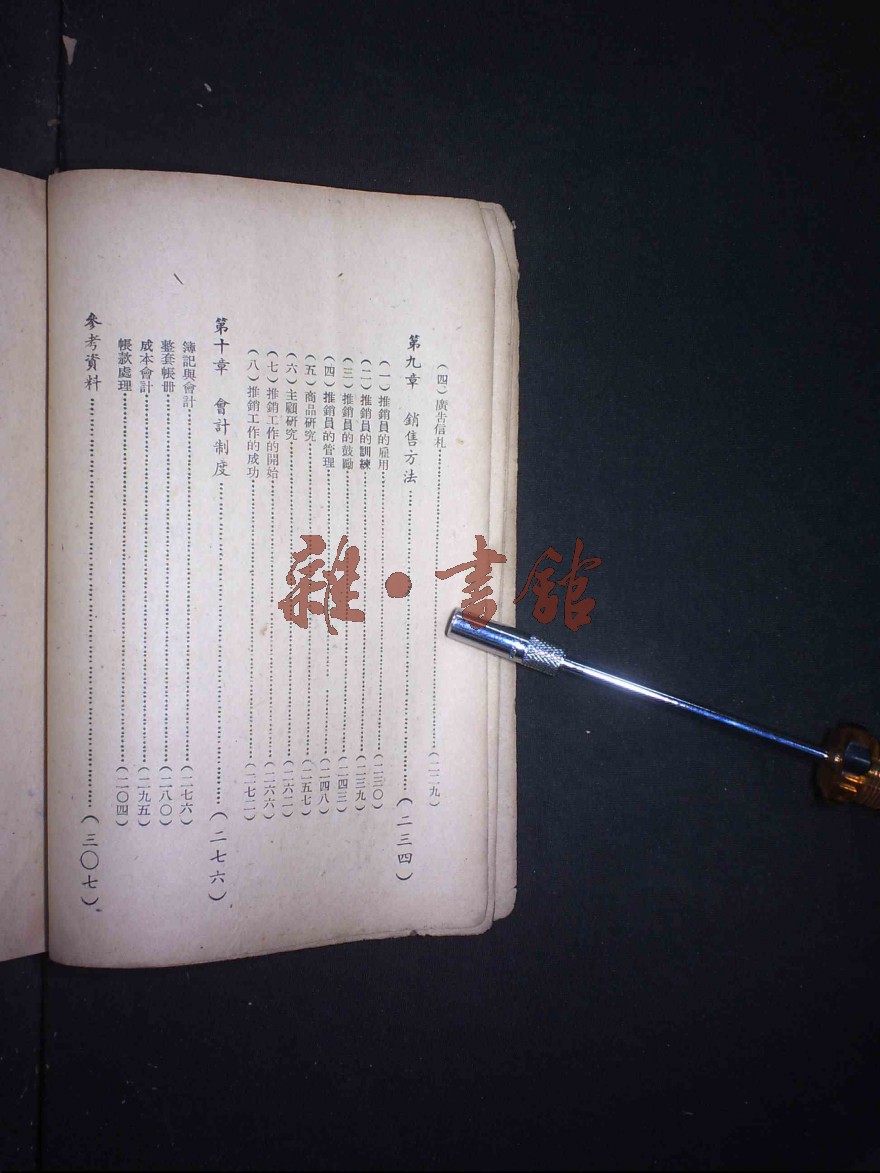 (四)廣告信札……(二二九)
第九章 銷售方法……(二三四)
(一)推銷員的雇用……(二三〇)
(二)推銷員的訓練……(二三九)
(三)推銷員的鼓勵……(二四三)
(四)推銷員的管理……(二四八)
(五)商品研究……(二五七)
(六)主顧研究……(二六二)
(七)推銷工作的開始……(二六六)
(八)推銷工作的成功……(二七二)
第十章 會計制度……(二七六)
簿記與會計……(二七六)
整套帳冊……(二八〇)
成本會計……(二九五)
帳款處理……(二〇四)
參考資料……(三〇七)
雜·書館